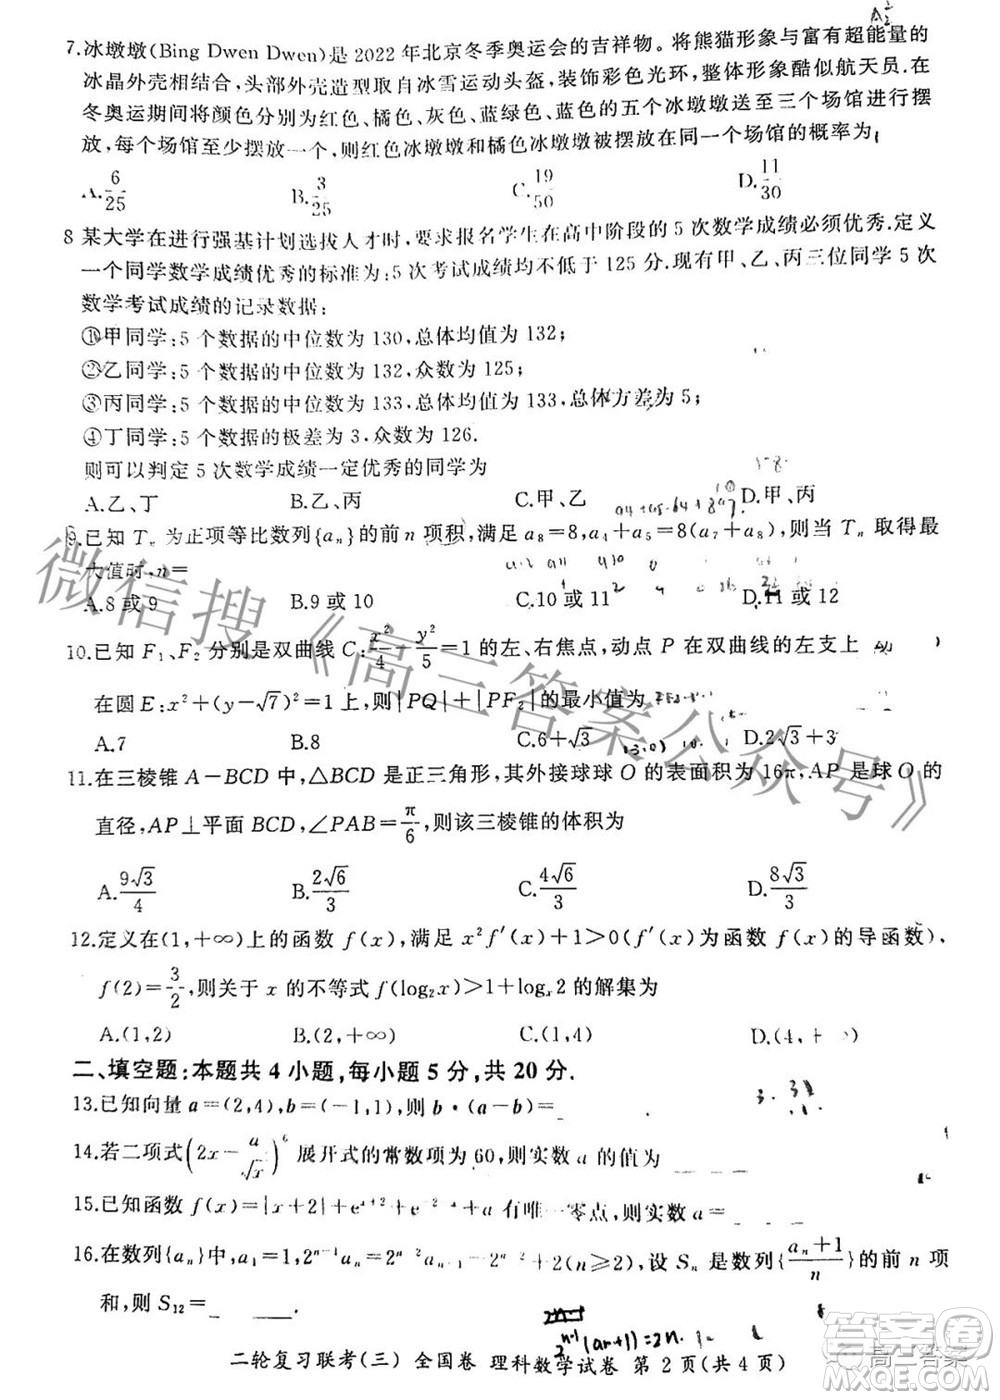 7.冰墩墩(Bing Dwen Dwen)是 2022 年北京冬季奥运会的吉祥物。将熊猫形象与富有超能量的
冰晶外壳相结合,头部外壳造型取自冰雪运动头盔,装饰彩色光环,整体形象酷似航天员.在
冬奥运期间将颜色分别为红色、橘色、黄色、蓝绿色、蓝色的五个冰墩墩安送至三个场馆进行摆
放,每个场馆至少摆放一个,则红色冰墩墩和橘色冰墩墩被摆放在同一个场馆的概率为
A.6/25 B.3/25 C.19/50 D.11/30
8 某大学在进行强基计划选拔人才时,要求报名学生在高中阶段的 5 次数学成绩必须优秀.定义
一个同学数学成绩优秀的标准为:5 次考试成绩均不低于 125 分.现有甲、乙、丙三位同学 5 次
数学考试成绩的记录数据:
①甲同学:5 个数据的中位数为 130,总体均值为 132;
②乙同学:5 个数据的中位数为 132,众数为 125;
③丙同学:5 个数据的中位数为 133,总体均值为 133,总体方差为 5;
④丁同学:5 个数据的极差为 3,众数为 126.
则可以判定 5 次数学成绩一定优秀的同学为
A.乙、丁 B.乙、丙 C.甲、乙 D.甲、丙
9.已知 Tₙ 为正项等比数列{aₙ}的前 n 项积,满足 a₈=8,a₄+a₅=8(a₇+a₈),则当 Tₙ 取得最
大值时,n=
A.8 或 9 B.9 或 10 C.10 或 11 D.11 或 12
10.已知 F₁、F₂ 分别是双曲线 C:x²/4-y²/5=1 的左、右焦点,动点 P 在双曲线的左支上
在圆 E:x²+(y-√7)²=1 上,则|PQ|+|PF₂|的最小值为
A.7 B.8 C.6+√3 D.2√3+3
11.在三棱锥 A-BCD 中,△BCD 是正三角形,其外接球球 O 的表面积为 16π,AP 是球 O 的
直径,AP⊥平面 BCD,∠PAB=π/6,则该三棱锥的体积为
A.9√3/4 B.2√6/3 C.4√6/3 D.8√3/3
12.定义在(1,+∞)上的函数 f(x),满足 x²f′(x)+1>0(f′(x)为函数 f(x)的导函数),
f(2)=3/2,则关于 x 的不等式 f(log₂x)>1+logₓ2 的解集为
A.(1,2) B.(2,+∞) C.(1,4) D.(4,+∞)
二、填空题:本题共 4 小题,每小题 5 分,共 20 分.
13.已知向量 a=(2,4),b=(-1,1),则 b·(a-b)=
14.若二项式(2x-a/√x)⁶ 展开式的常数项为 60,则实数 a 的值为
15.已知函数 f(x)=|x+2|+eˣ⁺²+ 有唯一零点,则实数 a=
16.在数列{aₙ}中,a₁=1,2ⁿ⁻¹aₙ=2ⁿ 2(n≥2),设 Sₙ 是数列{(aₙ+1)/n}的前 n 项
和,则 S₁₂=
二轮复习联考(三) 全国卷 理科数学试卷 第 2 页(共 4 页)
微信搜《高三答案公众号》
答案圈
高三答案